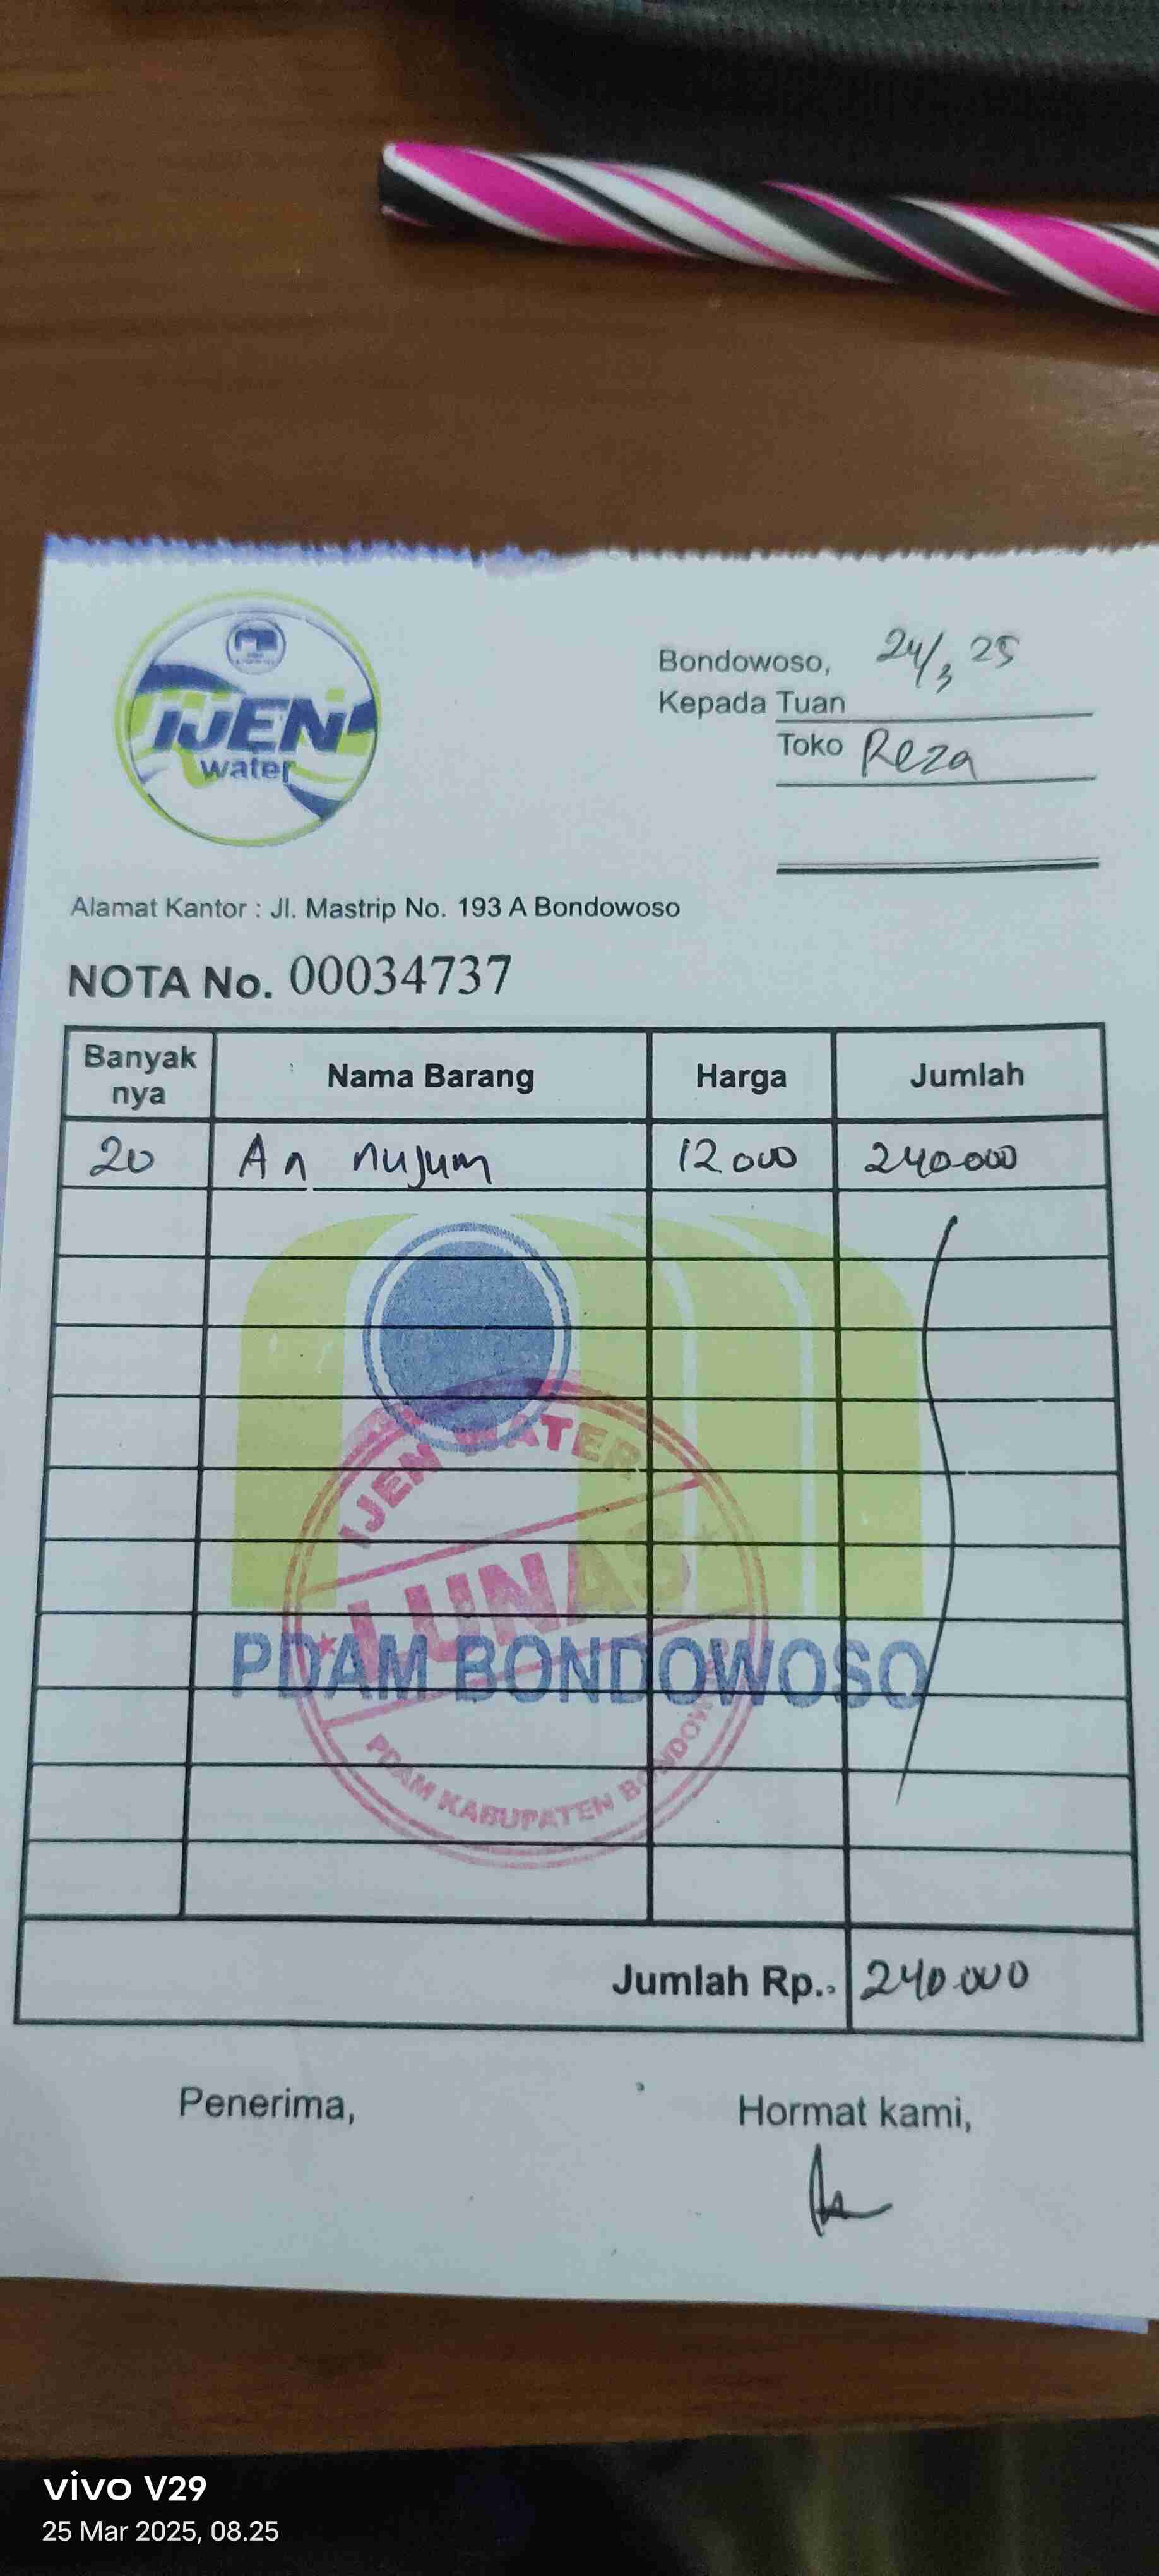 IJEN
water
Bondowoso, 24/3 25
Kepada Tuan
Toko Reza
Alamat Kantor : Jl. Mastrip No. 193 A Bondowoso
NOTA No. 00034737
Banyak nya Nama Barang Harga Jumlah
20 An nujum 12 000 240.000
IJEN WATER
LUNAS
PDAM BONDOWOSO
PDAM KABUPATEN BONDOWOSO
Jumlah Rp.. 240.000
Penerima, Hormat kami,
vivo V29
25 Mar 2025, 08.25